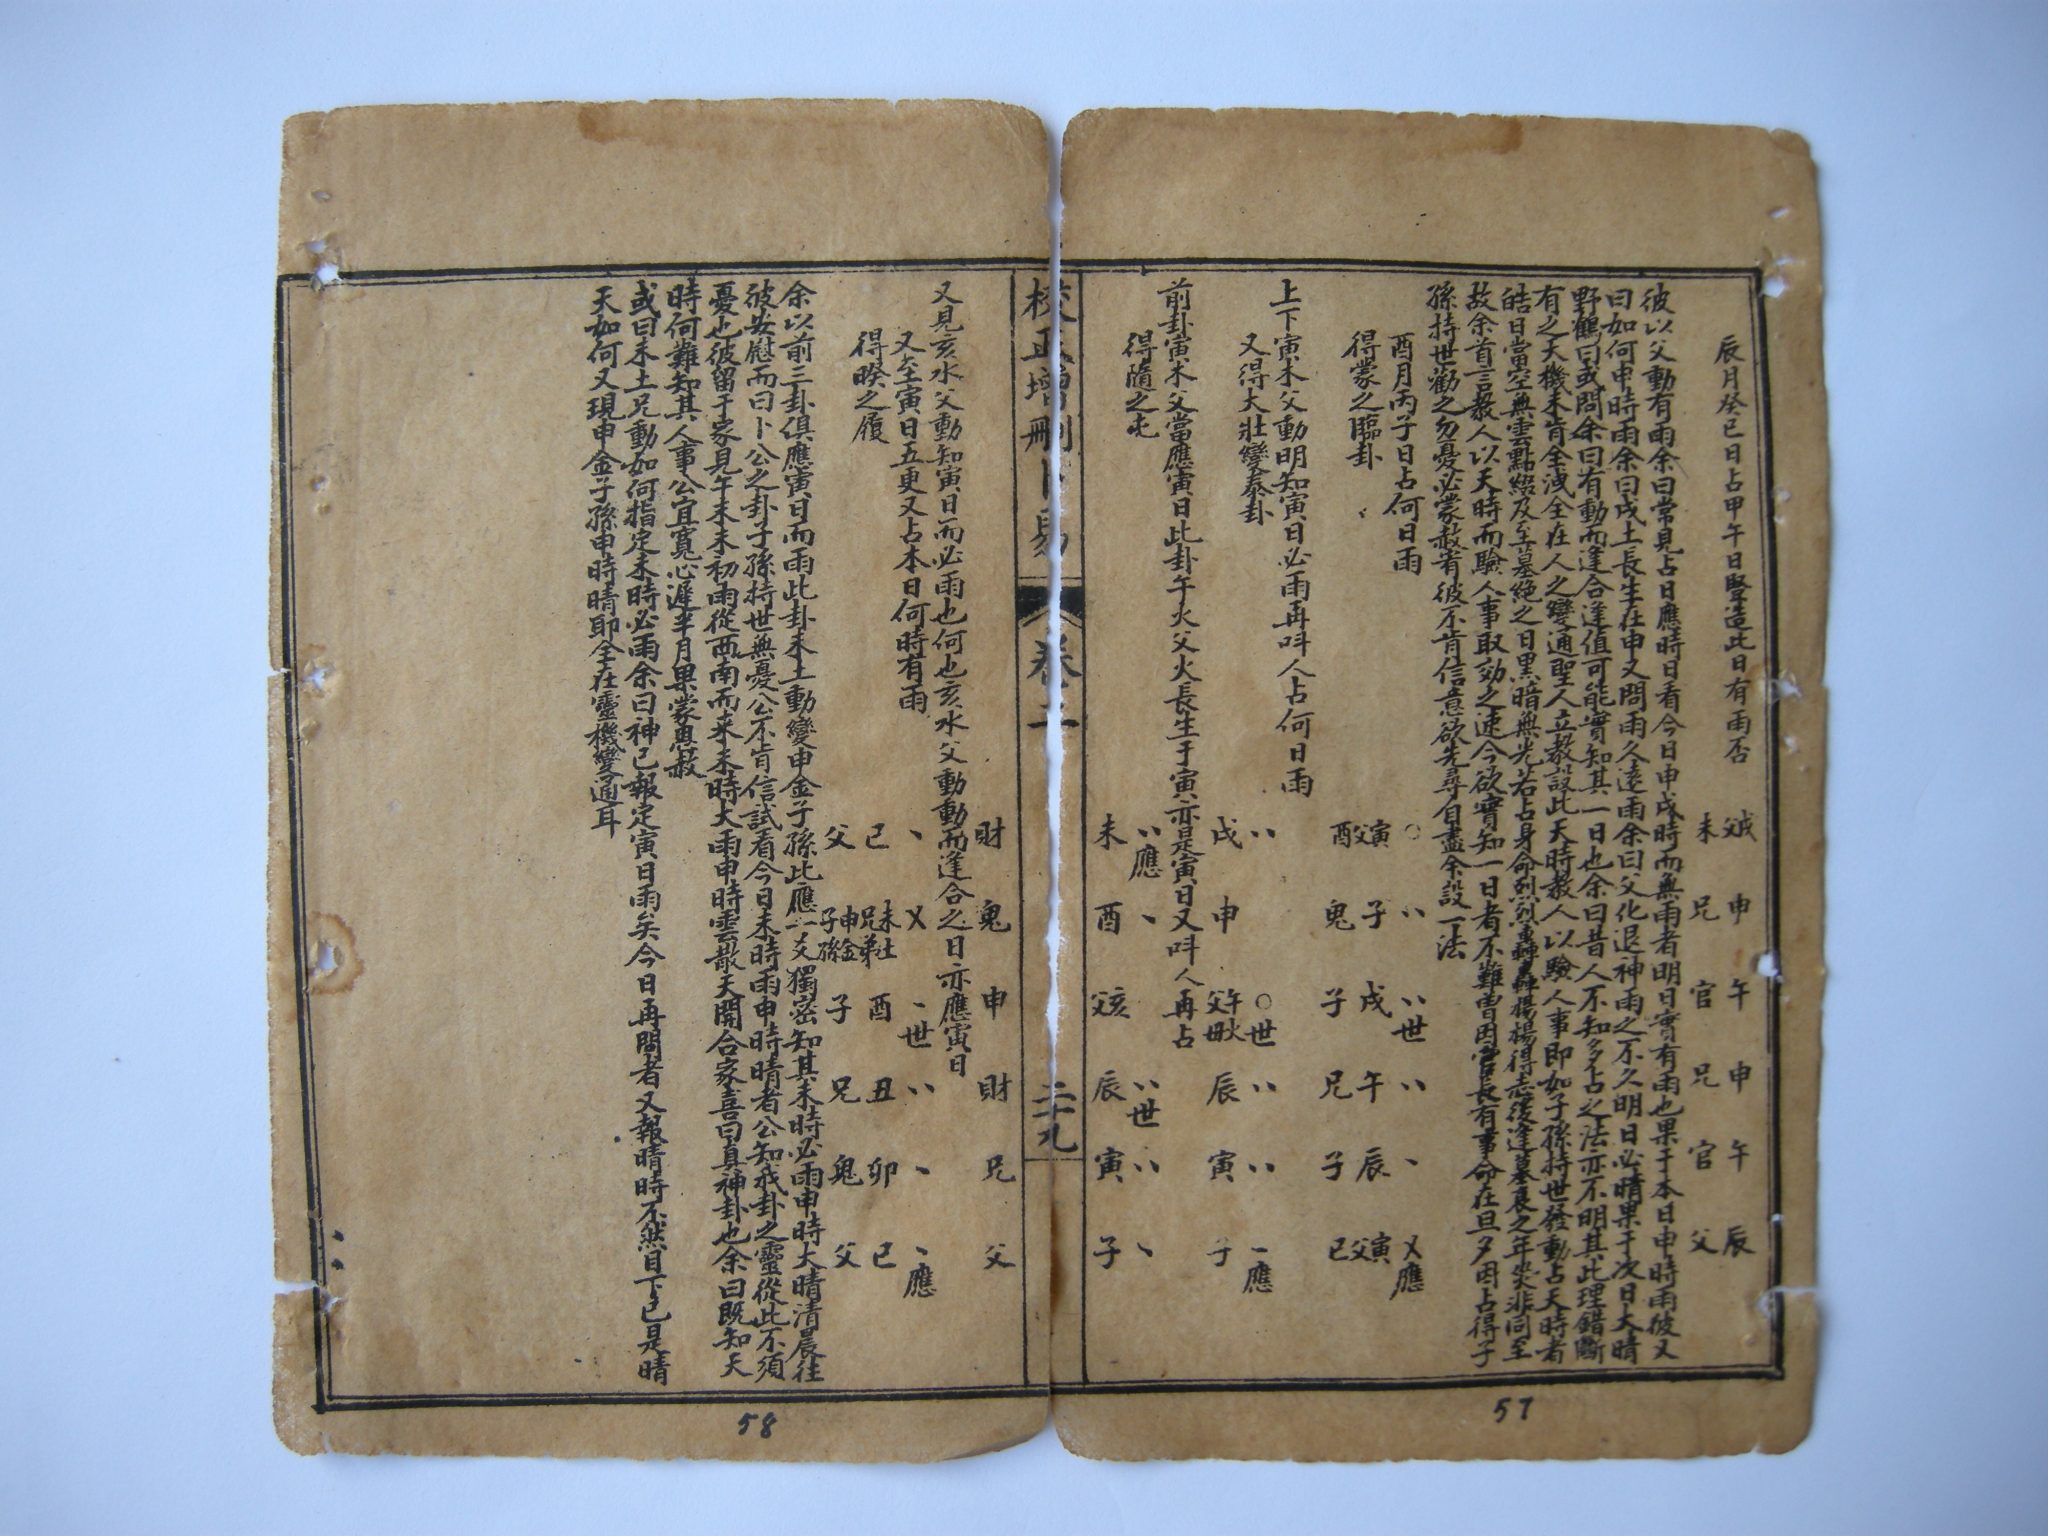 辰月癸巳日占甲午日豎造此日有雨否
父戌 申 午 申 午 辰
未 兄 官 兄 官 父
彼以父動有雨余曰常見占日應時日看今日申戌時而無雨者明日實有雨也果于本日申時雨彼又
曰如何申時雨余曰戌土長生在申又問雨久遠雨余曰父化退神雨之不久明日必晴果于次日大晴
野鶴曰或問余曰有動而逢合逢值可能實知其一日也余曰昔人不知多占之法亦不明其此理錯斷
有之天機未肯全洩全在人之變通聖人立教設此天時教人以驗人事即如子孫持世發動占天時者
皓日當空無雲點綴及至墓絕之日黑暗無光若占身命烈烈轟轟楊楊得志後逢墓衰之年災非同至
故余首言教人以天時而驗人事取効之速今欲實知一日者不難曾因官長有事命在旦夕因占得子
孫持世勸之勿憂必蒙赦宥彼不肯信意欲先尋自盡余設一法
酉月丙子日占何日雨
得蒙之臨卦
〇 、、 、、世 、、 、 乂應
父寅 子 戌 午 辰 父寅
酉 鬼 子 兄 子 巳
上下寅木父動明知寅日必雨再呌人占何日雨
又得大壯變泰卦
、、 〇世 、、 、、 、應
戌 申 父午 辰 寅 子
前卦寅木父當應寅日此卦午火父火長生于寅亦是寅日又呌人再占
得隨之屯
、、應 、 、、世 、、 、
未 酉 父亥 辰 寅 子
校正增刪卜易
卷二
二十九
又見亥水父動知寅日而必雨也何也亥水父動動而逢合之日亦應寅日
財 鬼 申 財 兄 父
又至寅日五更又占本日何時有雨
得睽之履
、 乂 、世 、、 、 、應
巳 未土兄弟 酉 丑 卯 巳
父 申金子孫 子 兄 鬼 父
余以前三卦俱應寅日而雨此卦未土動變申金子孫此應一爻獨密知其未時必雨申時大晴清晨往
彼安慰而曰卜公之卦子孫持世無憂公不肯信試看今日未時雨申時晴者公知我卦之靈從此不須
憂也彼留于家見午末未初雨從西南而来未時大雨申時雲散天開合家喜曰真神卦也余曰既知天
時何難知其人事公宜寬心遲半月果蒙恩赦
或曰未土兄動如何指定未時必雨余曰神已報定寅日雨矣今日再問者又報晴時不然目下已是晴
天如何又現申金子孫申時晴耶全在靈機變通耳
58
57